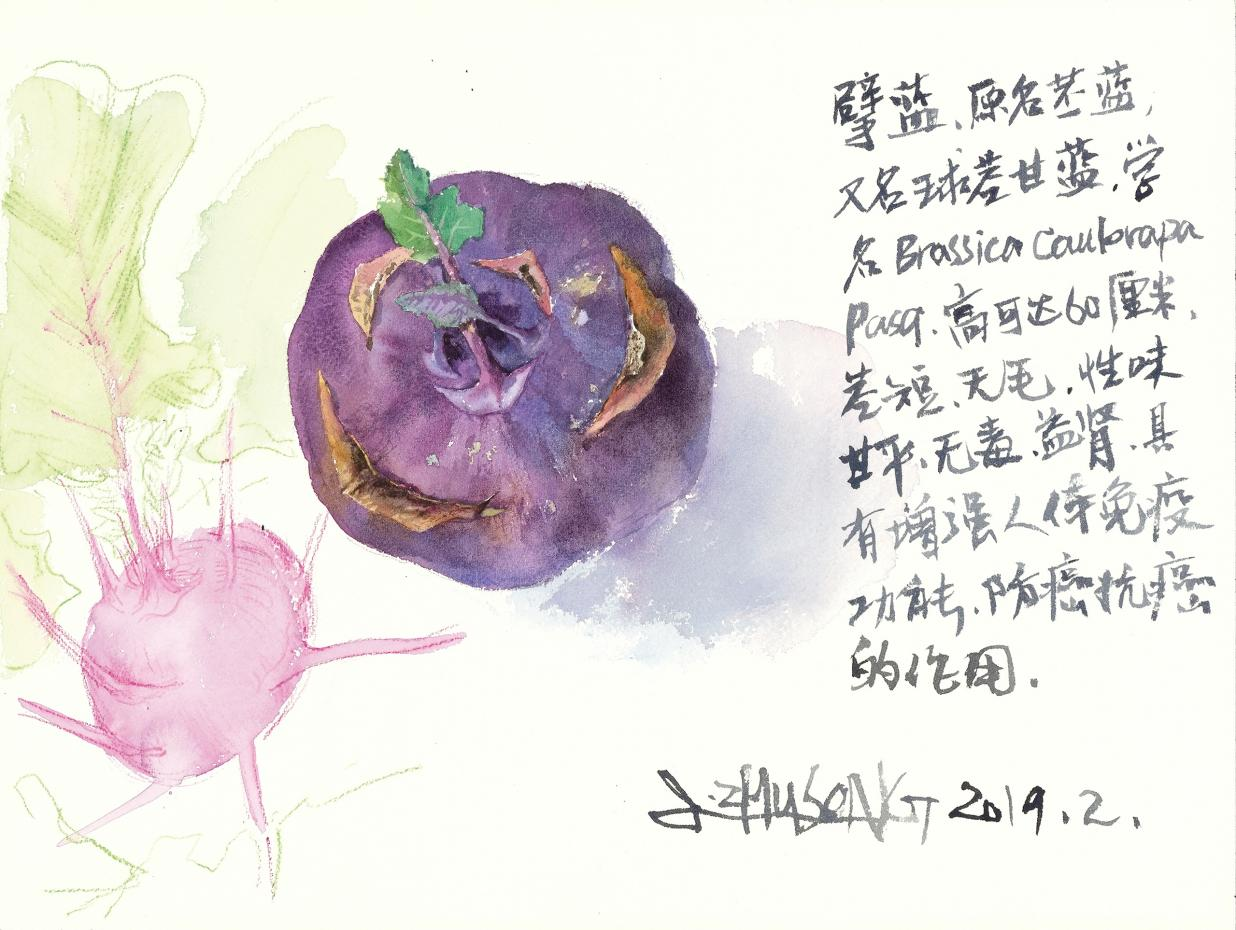 擘蓝、原名苤蓝,
又名球茎甘蓝.学
名 Brassica Caulorapa
Pasq.高可达60厘米,
茎短、无毛.性味
甘平、无毒.益肾.具
有增强人体免疫
功能,防癌抗癌
的作用.
2019.2.